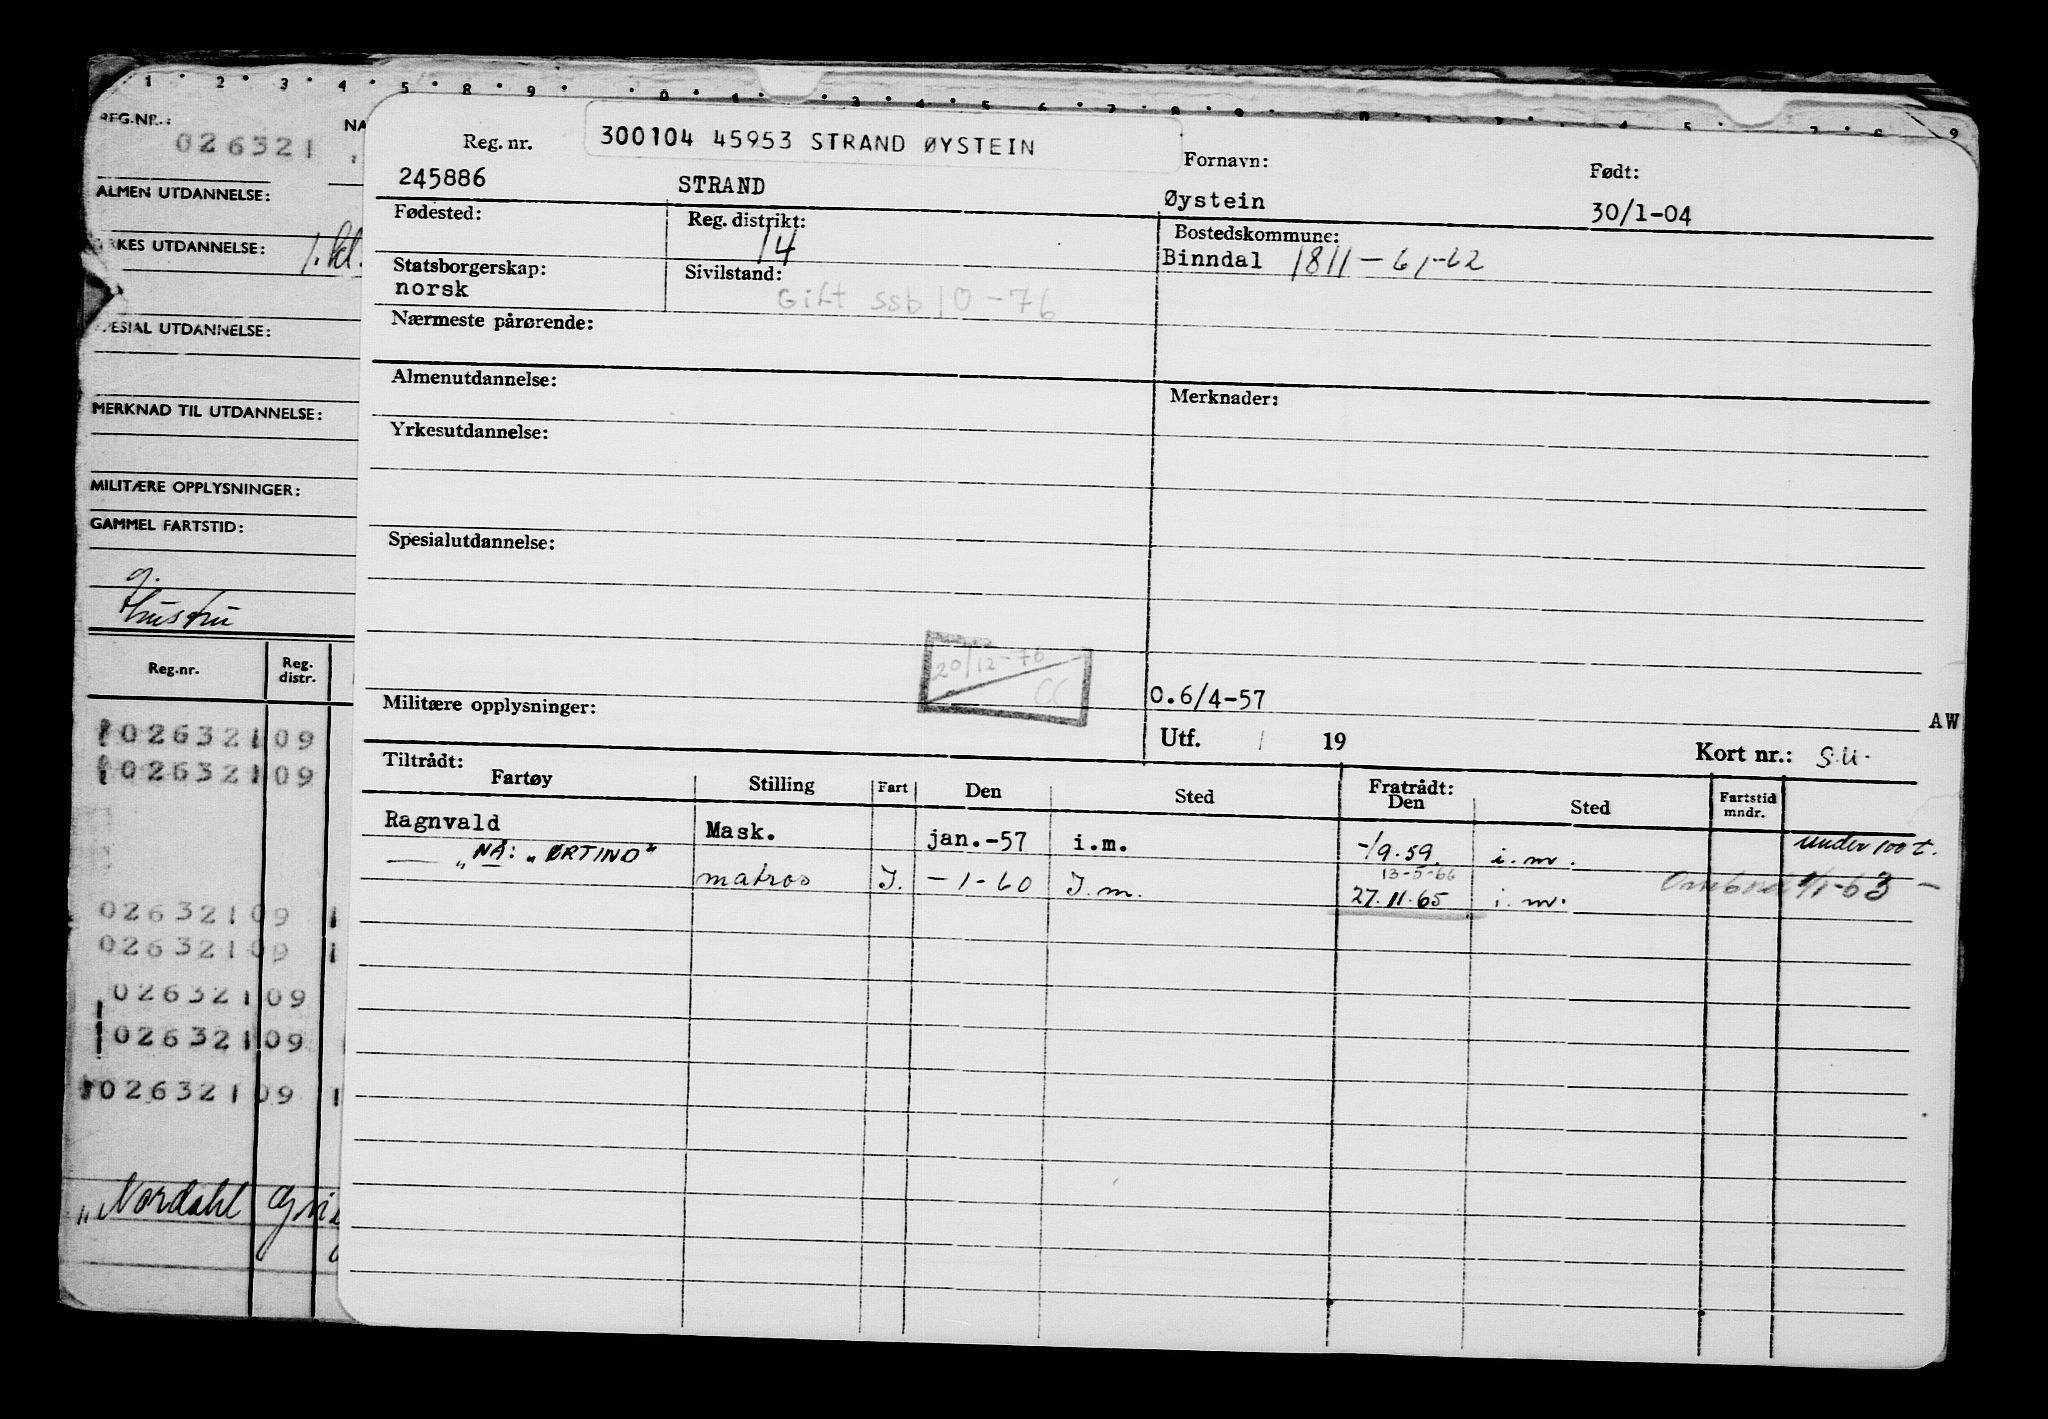 1 2 3 4 5 8 9
REG.NR.:
026321
NA
ALMEN UTDANNELSE:
YRKES UTDANNELSE: 1. kl.
SPESIAL UTDANNELSE:
MERKNAD TIL UTDANNELSE:
MILITÆRE OPPLYSNINGER:
GAMMEL FARTSTID:
g.
Hustru
Reg.nr. Reg. distr.
02632109
02632109
02632109
02632109
02632109
02632109
02632109
„Nordahl
Reg. nr. 300104 45953 STRAND ØYSTEIN Fornavn: Født:
245886 STRAND Øystein 30/1-04
Fødested: Reg. distrikt: 14 Bostedskommune:
Binndal 1811 - 61-62
Statsborgerskap: Sivilstand:
norsk Gift ssb 10-76
Nærmeste pårørende:
Almenutdannelse: Merknader:
Yrkesutdannelse:
Spesialutdannelse:
20/12-76
CC
Militære opplysninger: O.6/4-57
AW
Utf. / 19 Kort nr.: S.U.
Tiltrådt: Fratrådt:
Fartøy Stilling Fart Den Sted Den Sted Fartstid mndr.
Ragnvald Mask. jan.-57 i.m. -/9.59. i.m. under 100 t.
— „ — NÅ: „ØRTIND" matros I. -1-60 I.m. 13-5-66
27.11.65 i.m. 1/1-63 -